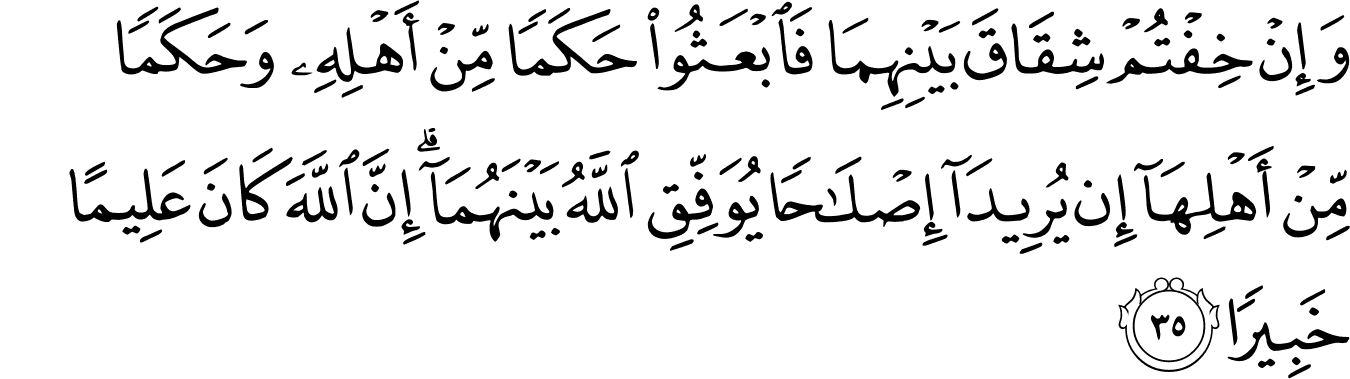 وَإِنْ خِفْتُمْ شِقَاقَ بَيْنِهِمَا فَٱبْعَثُوا۟ حَكَمًا مِّنْ أَهْلِهِۦ وَحَكَمًا
مِّنْ أَهْلِهَآ إِن يُرِيدَآ إِصْلَـٰحًا يُوَفِّقِ ٱللَّهُ بَيْنَهُمَآ ۗ إِنَّ ٱللَّهَ كَانَ عَلِيمًا
خَبِيرًا ٣٥